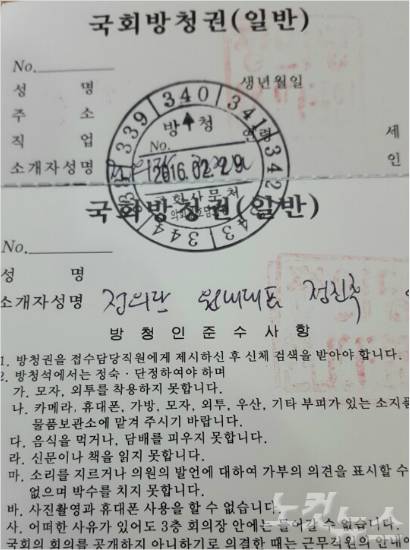 국회방청권(일반)
No.
성 명 생년월일
주 소
직 업 세
소개자성명 인
339 340 341 342 43 344
방 청
No.
2016. 02. 2 9.
국회방청권(일반)
No.
성 명
소개자성명 정의당 원내대표 정진후
방 청 인 준 수 사 항
1. 방청권을 접수담당직원에게 제시하신 후 신체 검색을 받아야 합니다.
2. 방청석에서는 정숙·단정하여야 하며
가. 모자, 외투를 착용하지 못합니다.
나. 카메라, 휴대폰, 가방, 모자, 외투, 우산, 기타 부피가 있는 소지품
물품보관소에 맡겨 주시기 바랍니다.
다. 음식을 먹거나, 담배를 피우지 못합니다.
라. 신문이나 책을 읽지 못합니다.
마. 소리를 지르거나 의원의 발언에 대하여 가부의 의견을 표시할 수
없으며 박수를 치지 못합니다.
바. 사진촬영과 휴대폰 사용을 할 수 없습니다.
사. 어떠한 사유가 있어도 3층 회의장 안에는 들어갈 수 없습니다.
국회의 회의를 공개하지 아니하기로 의결한 때는 근무직원의 안내에
노컷뉴스